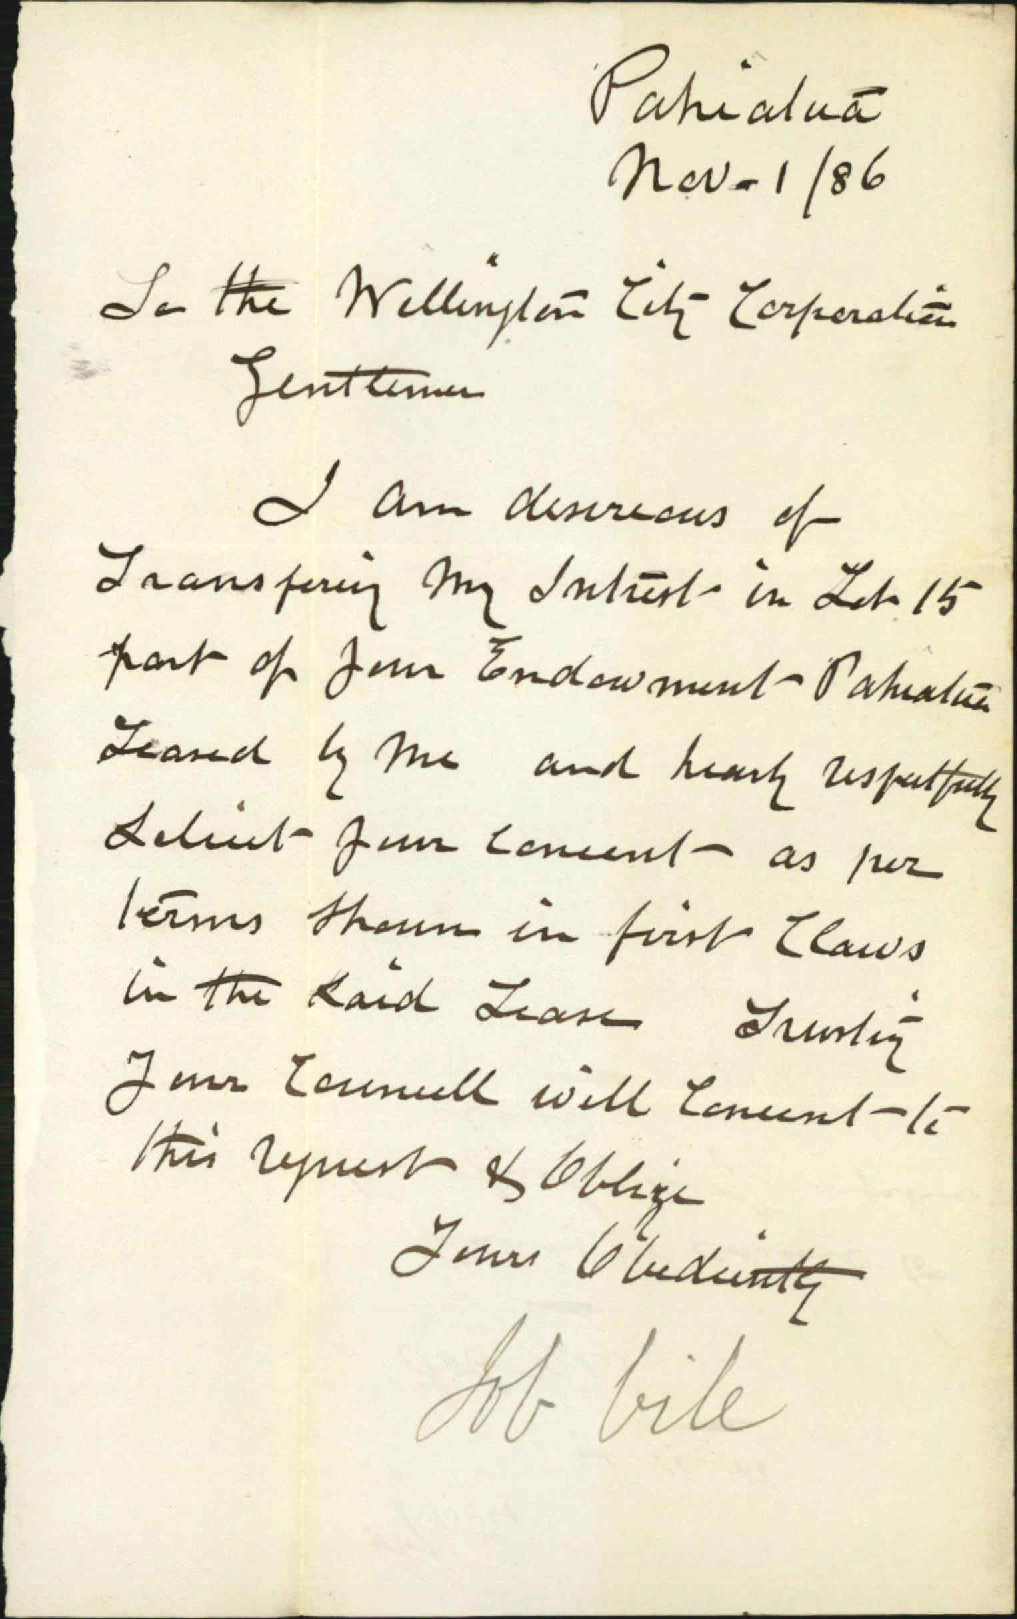 Pahiatua
Nov - 1/86
To the Wellington City Corporation
Gentlemen
I am desireous of
Transfering My Intrest in Lot 15
part of your Endowment Pahiatua
Leased by Me and hearby respectfully
Solicit your Concent as per
terms shown in first Claws
in the said Lease Trusting
Your Councell will Concent to
this request & Oblige
Yours Obediently
Job Vile